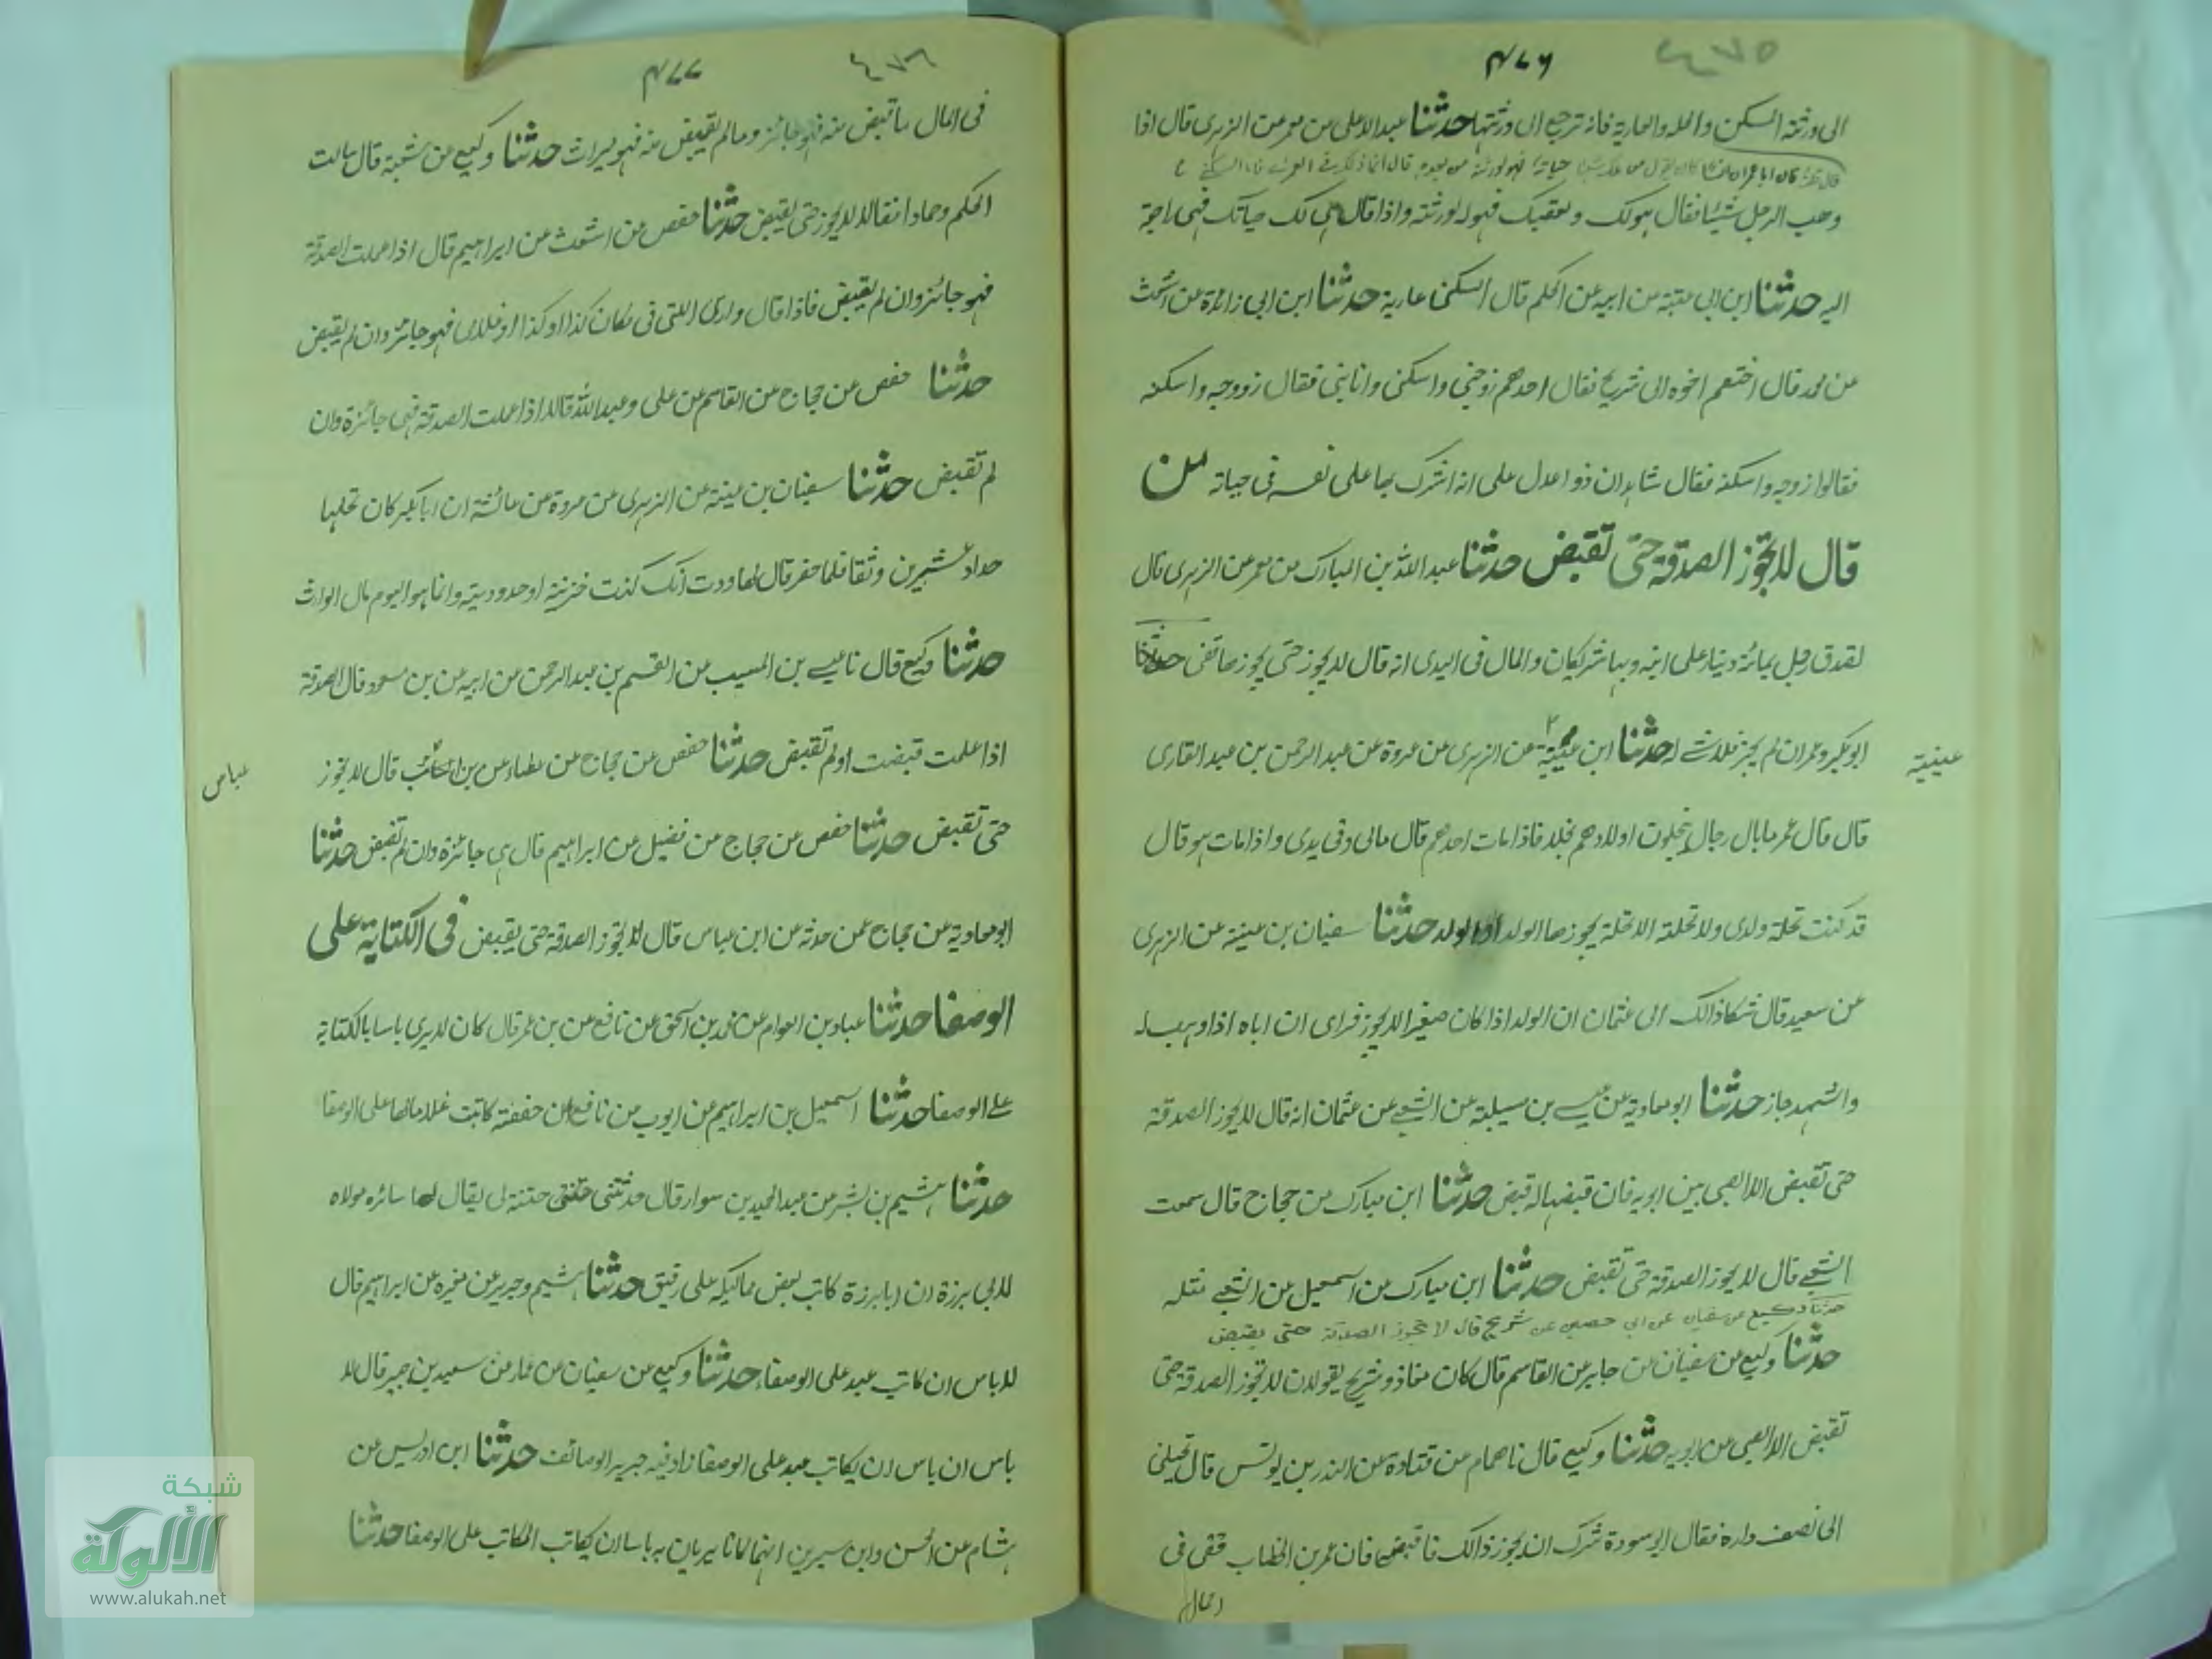 ٤٧٥
٤٧٦
الى ورثته السكن والعارية فانه ترجع الى ورثتها حدثنا عبد الاعلى عن معمر عن الزهرى قال اذا
وهب الرجل شيئا فقال هو لك ولعقبك فهو له ولورثته واذا قال هى لك حياتك فهى راجعة
اليه حدثنا ابن ابى عتبة عن ابيه عن الحكم قال السكنى عارية حدثنا ابن ابى زائدة عن اشعث
عن محمد قال اختصم اخوه الى شريح فقال احدهم زوجنى واسكنى وانا بنى فقال زووجه واسكنه
فقالوا زوجه واسكنه فقال شاهدان ذوا عدل على انه اشرك بها على نفسه فى حياته من
قال لا تجوز الصدقة حتى تقبض حدثنا عبد الله بن المبارك عن معمر عن الزهرى قال
تصدق رجل بمائة دينار على ابنه وهما شريكان والمال فى ايدى انه قال لا يجوز حتى يحوزها قضى
ابو بكر وعمر ان لم يحز فلا شئ حدثنا ابن عيينة عن الزهرى عن عروة عن عبد الرحمن بن عبد القارى
عيينة
قال قال عمر ما بال رجال ينحلون اولادهم نحلا فاذا مات احدهم قال مالى وفى يدى واذا مات هو قال
قد كنت نحلته ولدى ولا نحلة الا نحلة يحوزها الولد حدثنا سفيان بن عيينة عن الزهرى
عن سعيد قال شكا ذالك الى عثمان ان الولد اذا كان صغيرا لا يحوز فراى ان اباه اذا وهب له
واشهد جاز حدثنا ابو معاوية عن بن مسيلبة عن الشعبى عن عثمان انه قال لا يجوز الصدقة
حتى تقبض الا الصبى بين ابويه فان قبضهما له قبض حدثنا ابن مبارك عن حجاج قال سمعت
الشعبى قال لا يجوز الصدقة حتى تقبض حدثنا ابن مبارك عن اسمعيل عن الشعبى مثله
حدثنا وكيع عن سفيان عن ابى حصين عن شريح قال لا تجوز الصدقة حتى يقبض
حدثنا وكيع عن سفيان عن جابر عن القاسم قال كان معاذ وشريح يقولان لا تجوز الصدقة حتى
تقبض الا الصبى من ابويه حدثنا وكيع قال نا همام عن قتادة عن النضر بن يونس قال نحلنى
الى نصف داره فقال ابو سودة شرك ان يجوز ذالك فاقبضه فان عمر بن الخطاب قضى فى
المال
٤٧٦
٤٧٧
فى المال ما قبض منه فهو جائز وما لم يقبض منه فهو ميراث حدثنا وكيع عن شعبة قال سالت
الحكم وحمادا فقالا لا يجوز حتى يقبض حدثنا حفص عن اشعث عن ابراهيم قال اذا علمت الصدقة
فهو جائز وان لم يقبض فاذا قال دارى اللتى فى مكان كذا او كذا لفلان فهو جائز وان لم يقبض
حدثنا حفص عن حجاج عن القاسم عن على وعبد الله قالا اذا علمت الصدقة فهى جائزة وان
لم تقبض حدثنا سفيان بن عيينة عن الزهرى عن عروة عن عائشة ان ابا بكر كان نحلها
جداد عشرين وسقا فلما حضر قال لها وددت انك كنت خزنتيه او جددتيه وانما هو اليوم مال الوارث
حدثنا وكيع قال نا عيسى بن المسيب عن القسم بن عبد الرحمن عن ابيه عن بن مسعود قال الصدقة
اذا علمت قبضت او لم تقبض حدثنا حفص عن حجاج عن عطاء عن بن قال لا يجوز
عباس
حتى تقبض حدثنا حفص عن حجاج عن فضيل عن ابراهيم قال هى جائزة وان لم تقبض حدثنا
ابو معاوية عن حجاج عمن حدثه عن ابن عباس قال لا تجوز الصدقة حتى يقبض فى الكتابة على
الوصفا حدثنا عباد بن العوام عن محمد بن اسحق عن نافع عن بن عمر قال كان لا يرى باسا بالكتابة
على الوصفا حدثنا اسمعيل بن ابراهيم عن ايوب عن نافع ان حفصة كاتبت غلاما لها على الوصفا
حدثنا هشيم بن بشر عن عبد الحميد بن سوار قال حدثتنى ختنة لى يقال لها سائره مولاه
لابى برزة ان ابا برزة كاتب بعض مماليكه على رقيق حدثنا هشيم وجرير عن مغيره عن ابراهيم قال
لا باس ان كاتب عبد على الوصفاء حدثنا وكيع عن سفيان عن عمار عن سعيد بن جبير قال لا
باس ان ياس ان يكاتب عبد على الوصفا زاد فيه جرير الوصائف حدثنا ابن ادريس عن
هشام عن الحسن وابن سيرين انهما كانا لا يريان به باسا ان يكاتب المكاتب على الوصفا حدثنا
شبكة
الألوكة
www.alukah.net